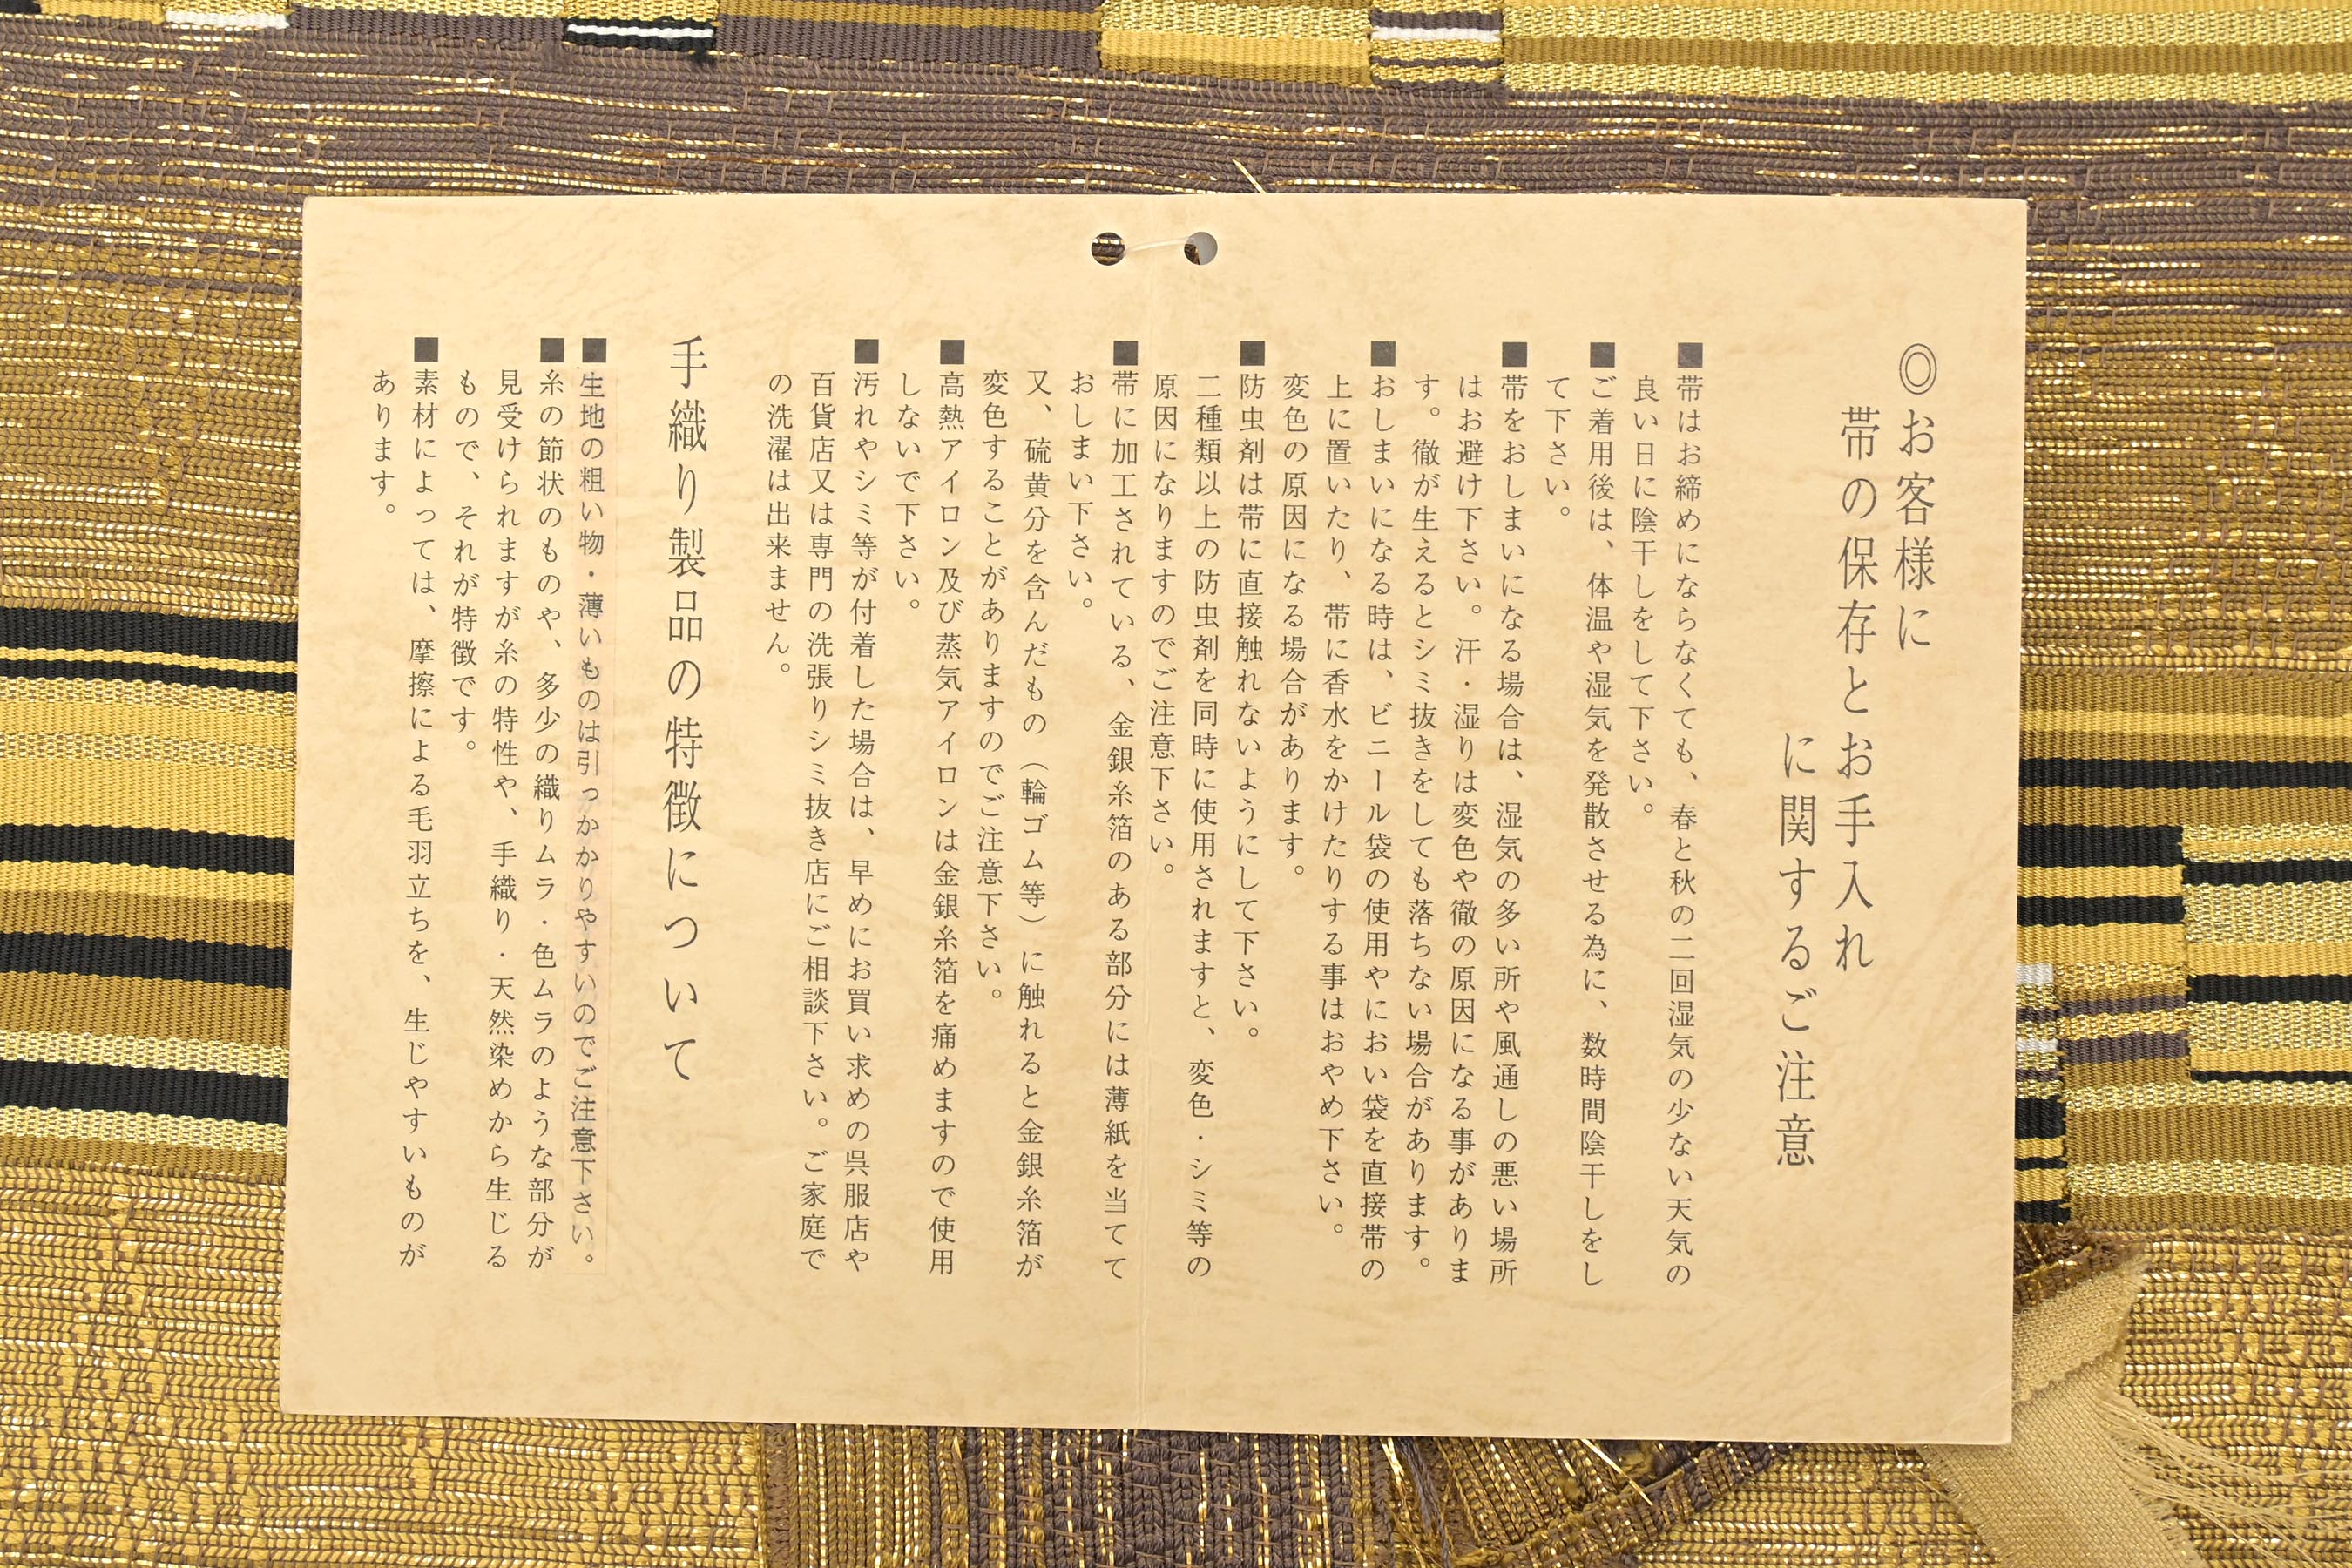 ◎お客様に
帯の保存とお手入れ
に関するご注意
■帯はお締めにならなくても、春と秋の二回湿気の少ない天気の
良い日に陰干しをして下さい。
■ご着用後は、体温や湿気を発散させる為に、数時間陰干しをし
て下さい。
■帯をおしまいになる場合は、湿気の多い所や風通しの悪い場所
はお避け下さい。汗・湿りは変色や徹の原因になる事がありま
す。徹が生えるとシミ抜きをしても落ちない場合があります。
■おしまいになる時は、ビニール袋の使用やにおい袋を直接帯の
上に置いたり、帯に香水をかけたりする事はおやめ下さい。
変色の原因になる場合があります。
■防虫剤は帯に直接触れないようにして下さい。
二種類以上の防虫剤を同時に使用されますと、変色・シミ等の
原因になりますのでご注意下さい。
■帯に加工されている、金銀糸箔のある部分には薄紙を当てて
おしまい下さい。
又、硫黄分を含んだもの（輪ゴム等）に触れると金銀糸箔が
変色することがありますのでご注意下さい。
■高熱アイロン及び蒸気アイロンは金銀糸箔を痛めますので使用
しないで下さい。
■汚れやシミ等が付着した場合は、早めにお買い求めの呉服店や
百貨店又は専門の洗張りシミ抜き店にご相談下さい。ご家庭で
の洗濯は出来ません。
手織り製品の特徴について
■生地の粗い物・薄いものは引っかかりやすいのでご注意下さい。
■糸の節状のものや、多少の織りムラ・色ムラのような部分が
見受けられますが糸の特性や、手織り・天然染めから生じる
もので、それが特徴です。
■素材によっては、摩擦による毛羽立ちを、生じやすいものが
あります。